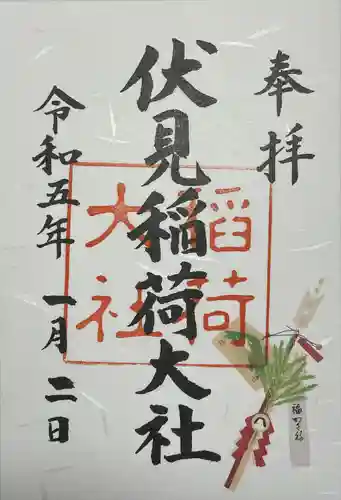 奉拝
伏見稲荷大社
稲荷
大社
令和五年 一月 二日